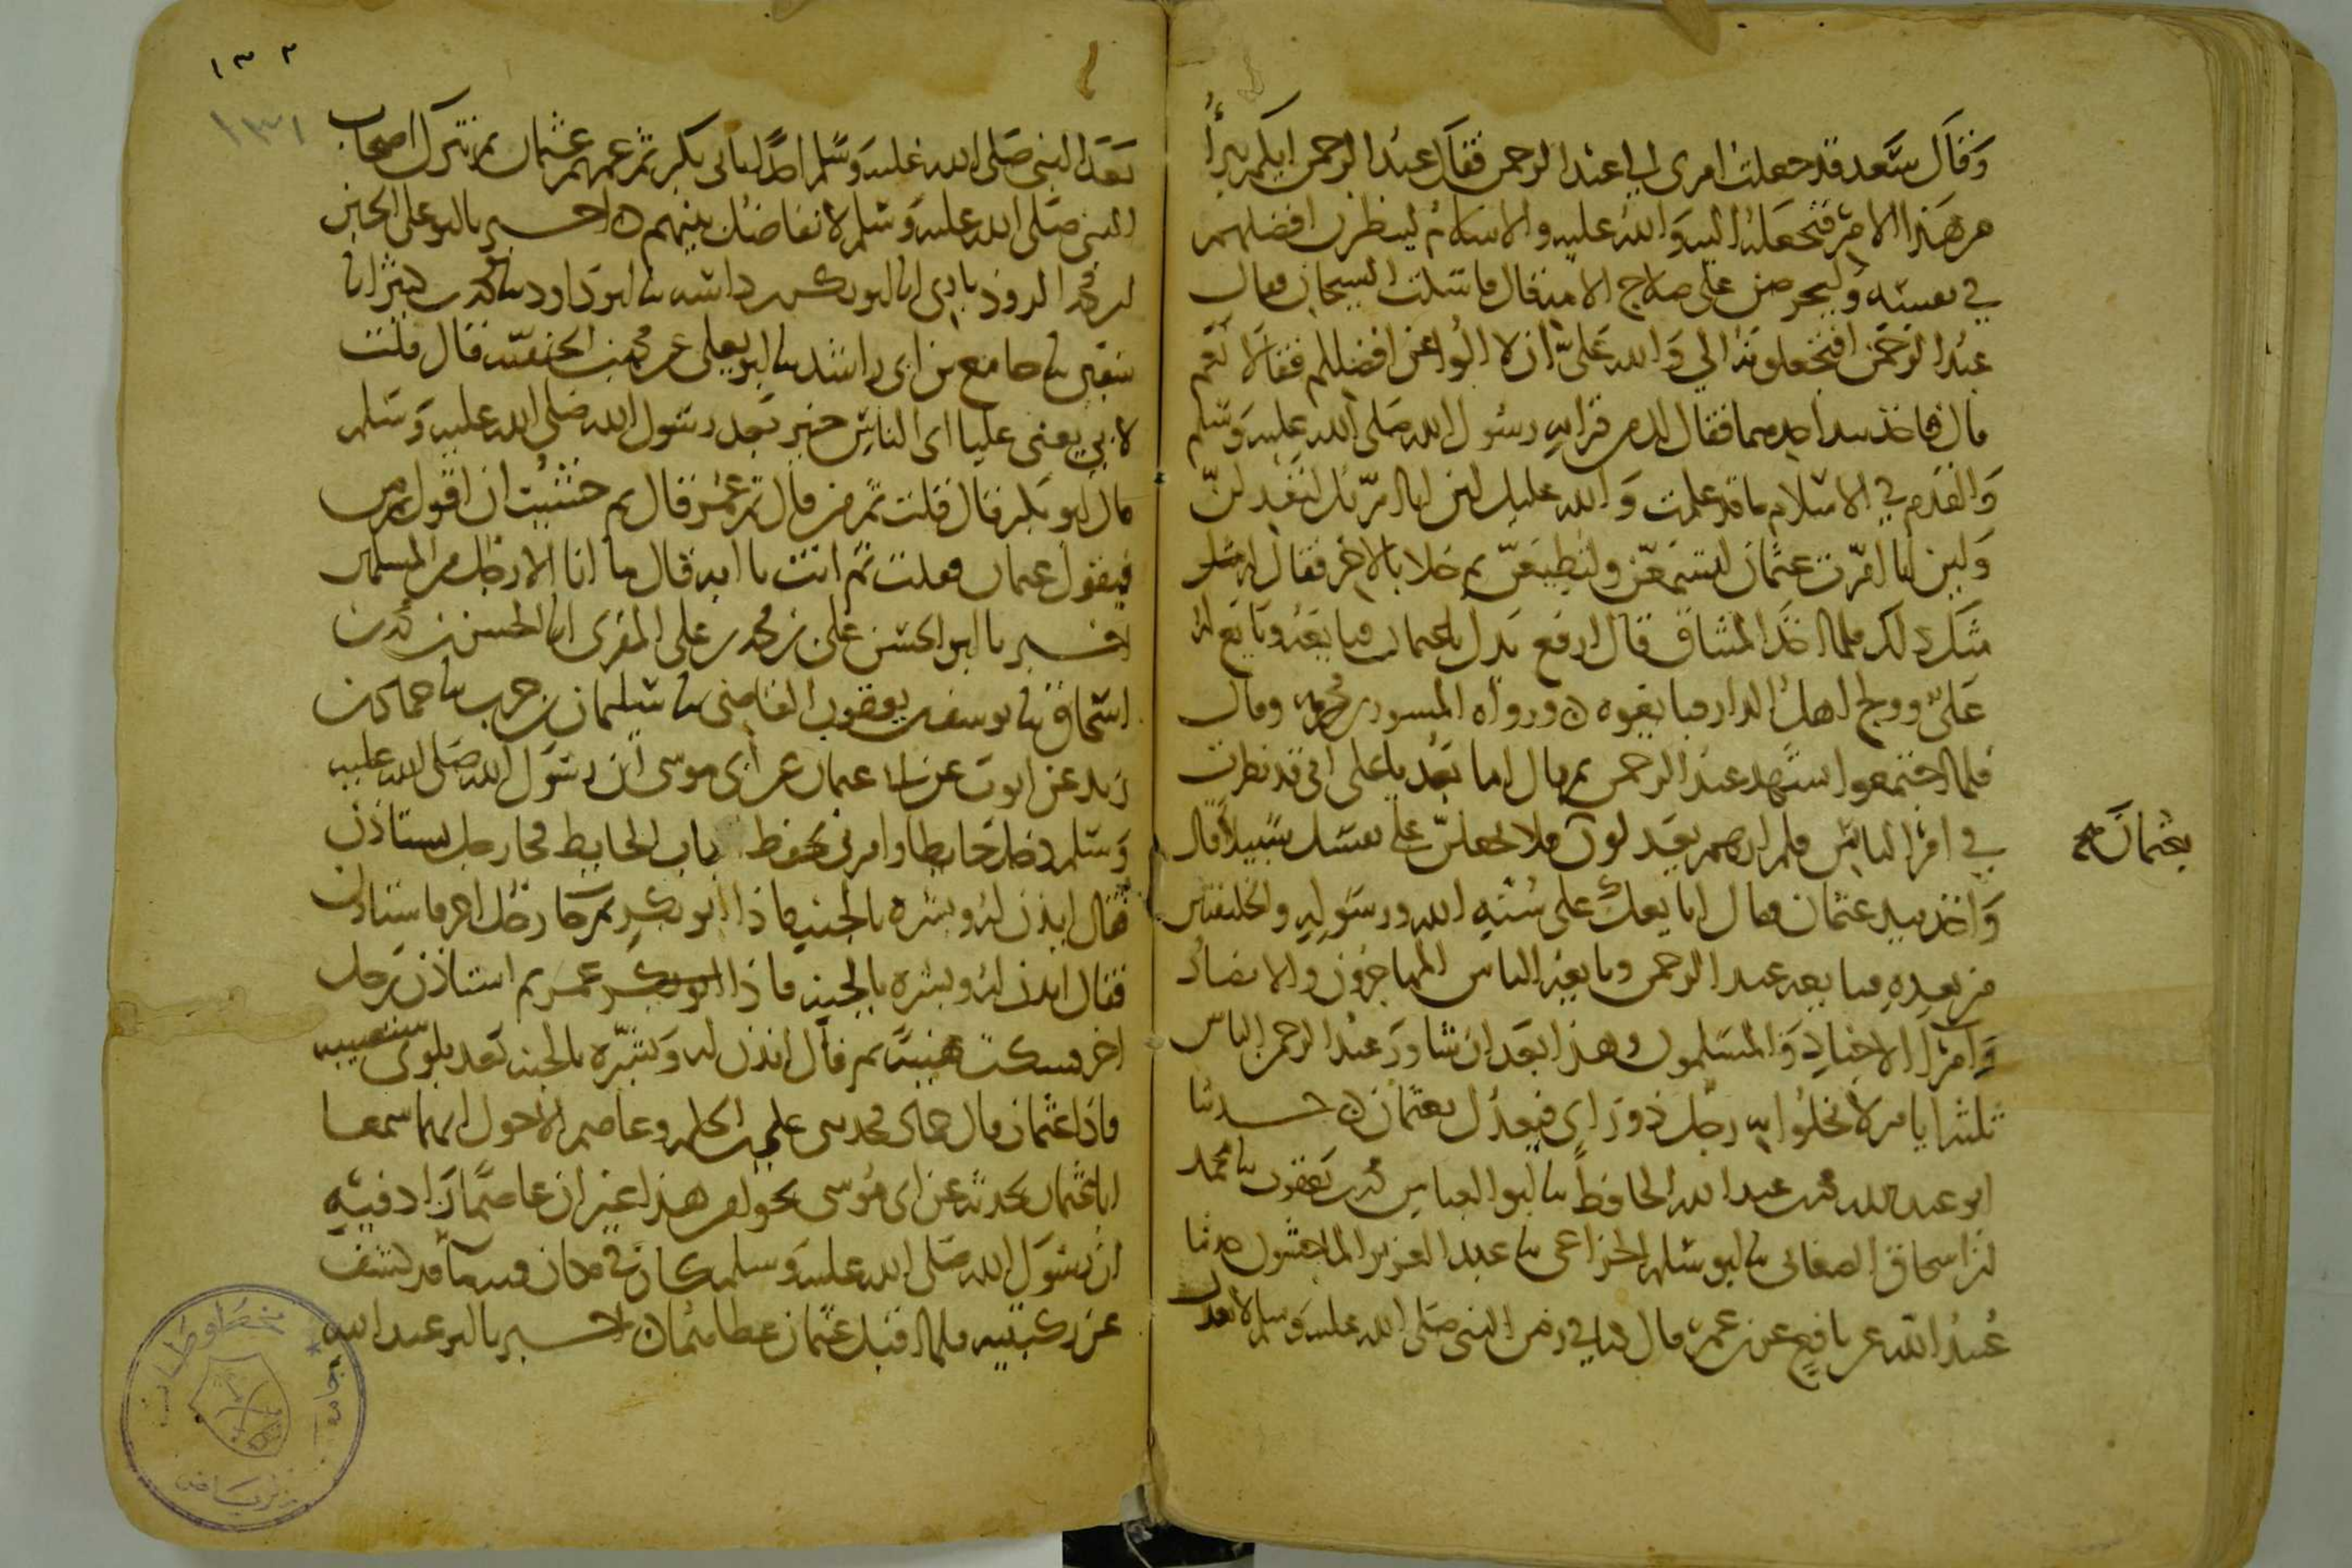 وقال سعد قد جعلت امري الى عبد الرحمن فقال عبد الرحمن ايكم يبرأ
من هذا الامر فنجعله اليه والله عليه والاسلام لينظرن افضلهم
في نفسه وليحرصن على صلاح الامة قال فاسكت الشيخان فقال
عبد الرحمن افتجعلونه الي والله علي ان لا الوا عن افضلكم فقالا نعم
قال فاخذ بيد احدهما فقال لك من قرابة رسول الله صلى الله عليه وسلم
والقدم في الاسلام ما قد علمت والله عليك لئن انا امرتك لتعدلن
ولئن انا امرت عثمان لتسمعن ولتطيعن ثم خلا بالاخر فقال له مثل
ذلك فلما اخذ الميثاق قال ارفع يدك يا عثمان فبايعه وبايع له
علي وولج اهل الدار فبايعوه ورواه المسور بن مخرمة وقال
فلما اجتمعوا تشهد عبد الرحمن ثم قال اما بعد يا علي اني قد نظرت
في امر الناس فلم ارهم يعدلون فلا تجعلن على نفسك سبيلا فقال
بعثمان صح
واخذ بيد عثمان وقال ابايعك على سنة الله ورسوله والخليفتين
من بعده فبايعه عبد الرحمن وبايعه الناس المهاجرون والانصار
وامراء الاجناد والمسلمون وهذا بعد ان شاور عبد الرحمن الناس
ثلثة ايام لا يخلوا به رجل ذو راي فيعدل بعثمان حدثنا
ابو عبد الله محمد بن عبد الله الحافظ ثنا ابو العباس محمد بن يعقوب ثنا محمد
بن اسحاق الصغاني ثنا ابو سلمة الخزاعي ثنا عبد العزيز الماجشون حدثنا
عبيد الله عن نافع عن بن عمر قال كنا في زمن النبي صلى الله عليه وسلم لا نعدل
١٣٢
١٣١
بعد النبي صلى الله عليه وسلم احدا بابي بكر ثم عمر ثم عثمان ثم نترك اصحاب
النبي صلى الله عليه وسلم لا نفاضل بينهم اخبرنا ابو علي الحسين
بن محمد الروذباري انا ابو بكر بن داسة ثنا ابو داود ثنا محمد بن كثير انا
سفين ثنا جامع بن ابي راشد ثنا ابو يعلى عن محمد بن الحنفية قال قلت
لابي يعني عليا اي الناس خير بعد رسول الله صلى الله عليه وسلم
قال ابو بكر قال قلت ثم من قال ثم عمر قال ثم خشيت ان اقول ثم من
فيقول عثمان فقلت ثم انت يا ابه قال ما انا الا رجل من المسلمين
اخبرنا ابو الحسن علي بن محمد بن علي المقرى انا الحسن بن محمد بن
اسحاق ثنا يوسف بن يعقوب القاضي ثنا سليمان بن حرب ثنا حماد بن
زيد عن ايوب عن ابي عثمان عن ابي موسى ان رسول الله صلى الله عليه
وسلم دخل حايطا وامرني بحفظ باب الحايط فجا رجل يستاذن
فقال ايذن له وبشره بالجنة فاذا ابو بكر ثم جا رجل اخر فاستاذن
فقال ايذن له وبشره بالجنة فاذا عمر ثم استاذن رجل
اخر فسكت هنيئة ثم قال ايذن له وبشره بالجنة بعد بلوى ستصيبه
فاذا عثمان قال حماد فحدثني علي بن الحكم وعاصم الاحول انهما سمعا
ابا عثمان يحدثه عن ابي موسى نحوا من هذا غير ان عاصما زاد فيه
ان رسول الله صلى الله عليه وسلم كان في مكان فيه ما قد كشف
عن ركبتيه فلما اقبل عثمان غطاهما اخبرنا ابو عبد الله
مخطوطات
جامعة
الرياض